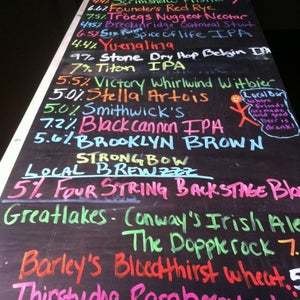 Founders Red Rye
7% Troegs Nugget Nectar
Spice of life IPA
4.4% Yuengling
Stone Dry Hop Belgin IPA
7% Titan IPA
5.5% Victory Whirlwind Witbier
5.0% Stella Artois
5.0% Smithwick's
7.2% Black cannon IPA
5.6% Brooklyn Brown
STRONGBOW
LOCAL BREWZZZ
5% Four String Backstage
Greatlakes: Conway's Irish Ale
The Dopplerock 7.
Barley's Bloodthirst wheat 5.
Thirstydog
Local Bar